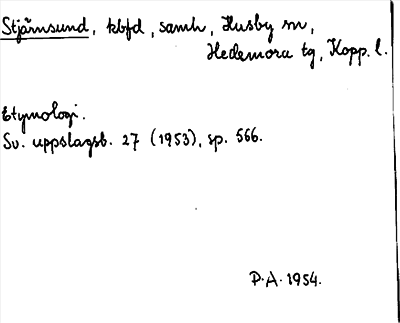 Stjärnsund, kbfd, samh, Husby sn,
Hedemora tg, Kopp. l.
Etymologi.
Sv. uppslagsb. 27 (1953), sp. 566.
P.A. 1954.